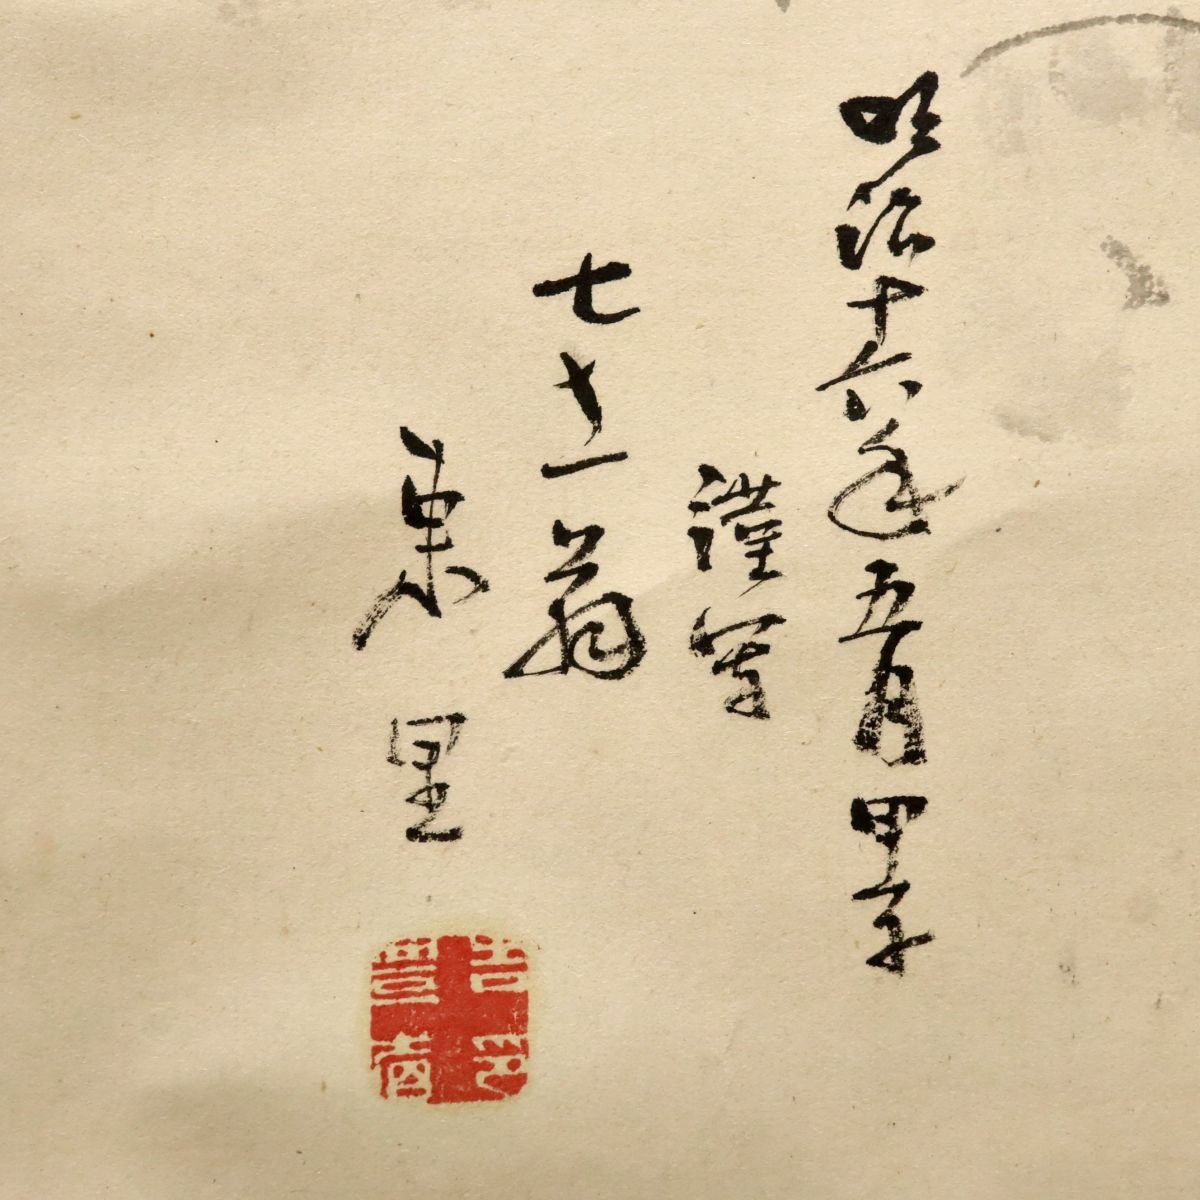 明治十六年五月甲子
謹写
七十一翁
東里